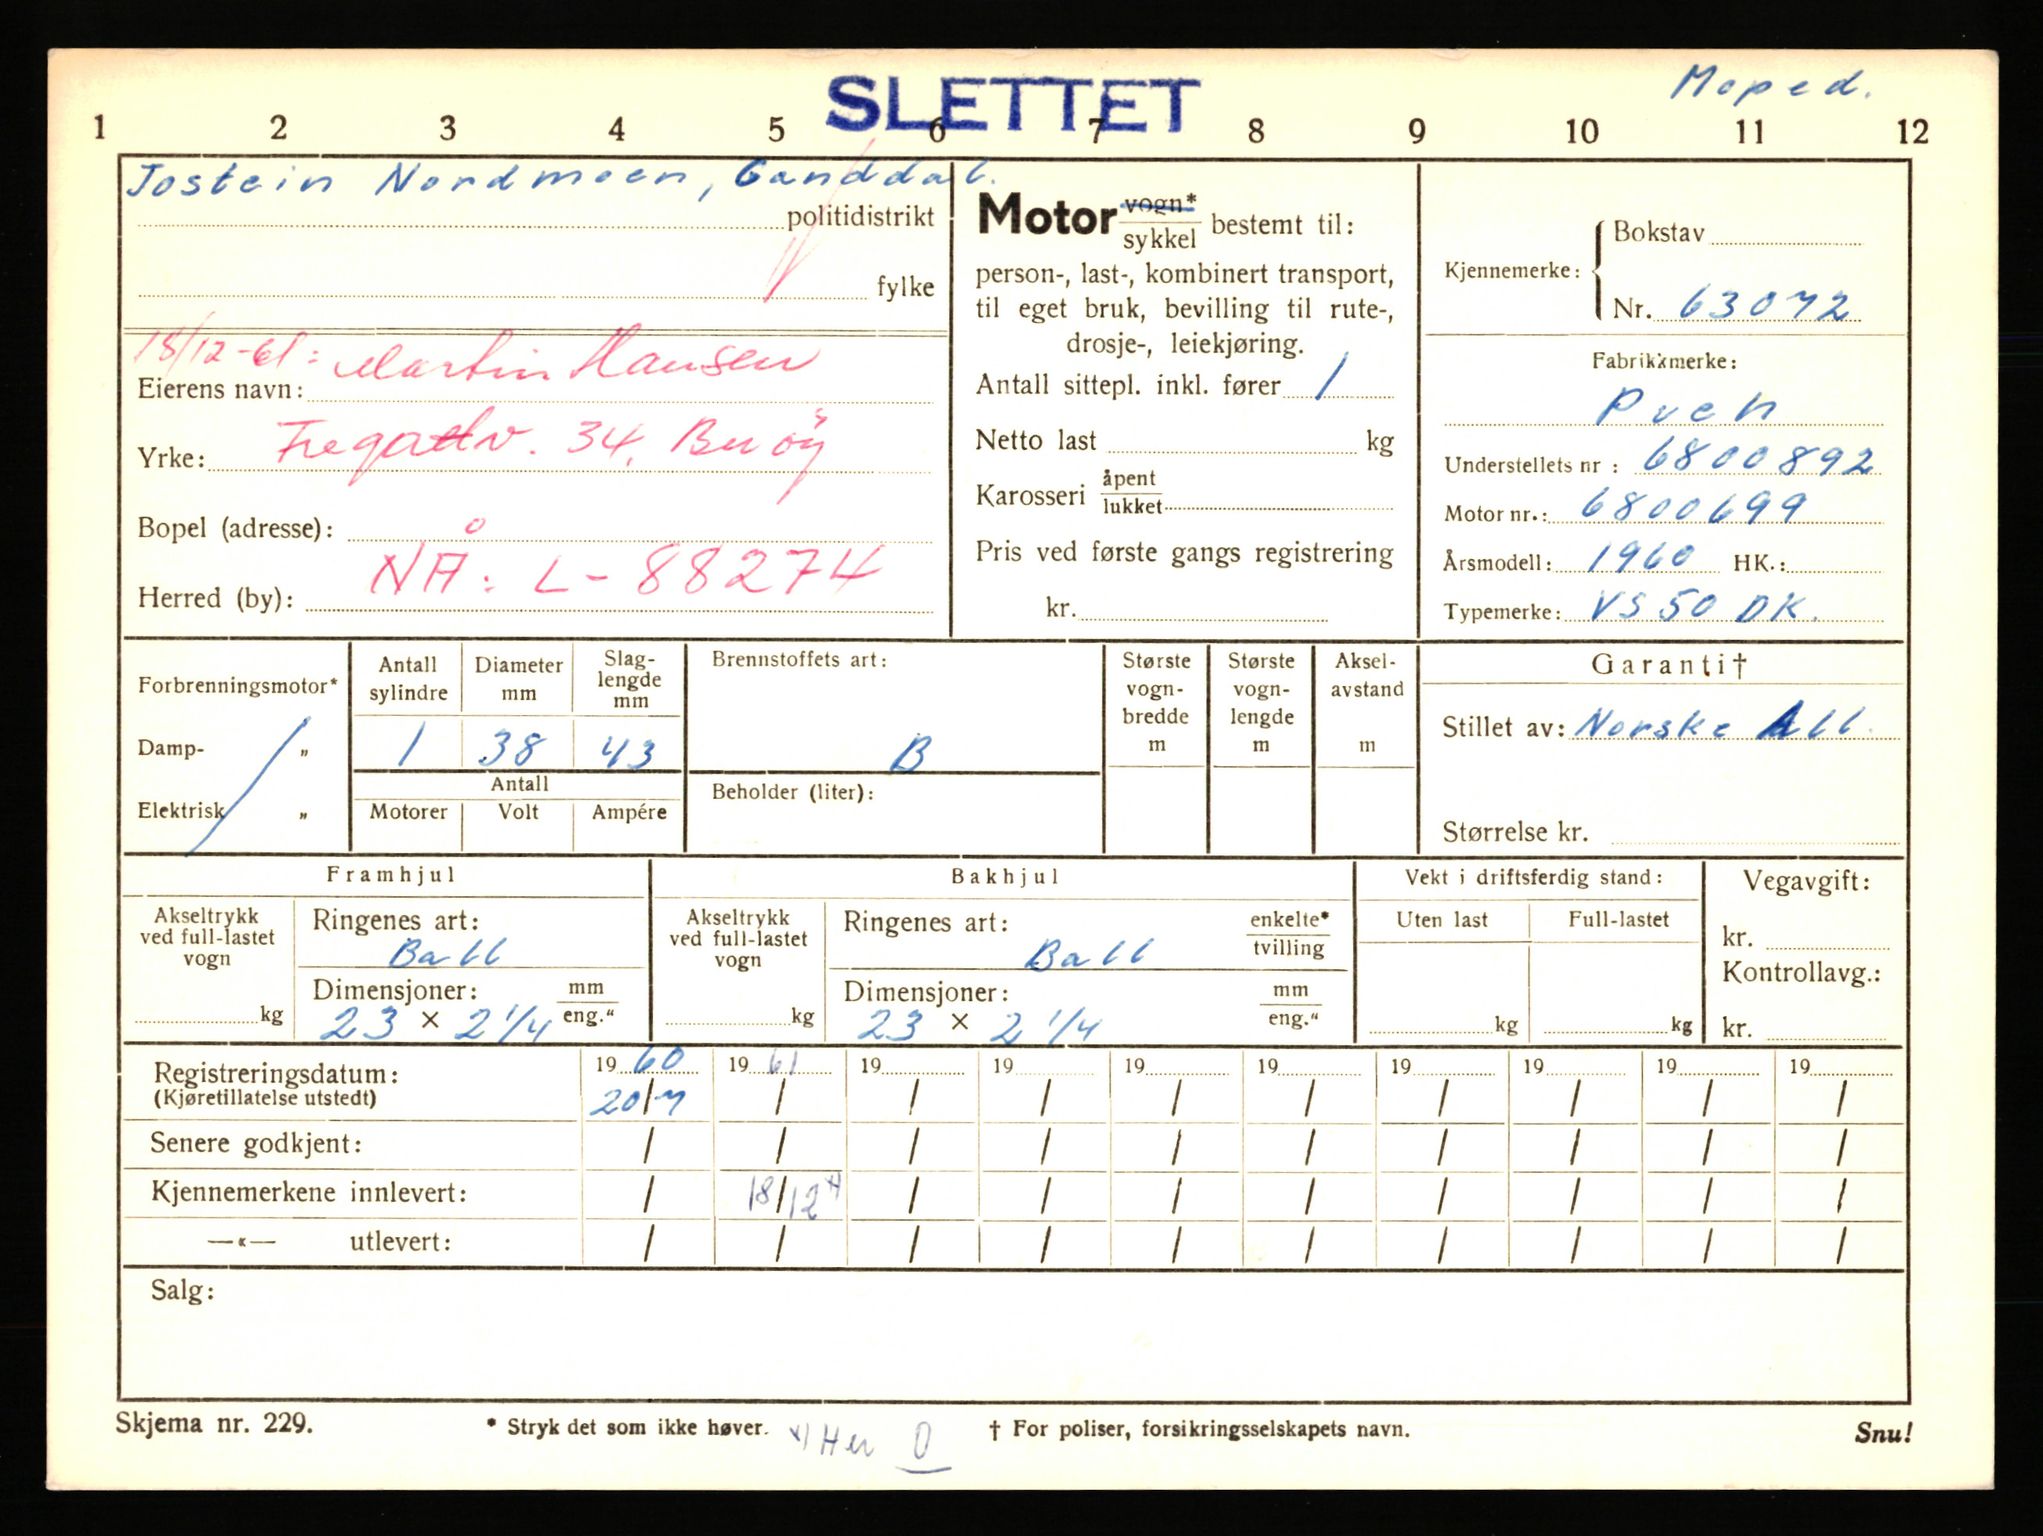 SLETTET
Moped.
1 2 3 4 5 6 7 8 9 10 11 12
Jostein Nordmoen, Ganddal.
politidistrikt
fylke
18/12-61: Martin Hansen
Eierens navn:
34, Buøy
Yrke:
Bopel (adresse):
NÅ: L-88274
Herred (by):
Motor vogn*
sykkel bestemt til:
person-, last-, kombinert transport,
til eget bruk, bevilling til rute-,
drosje-, leiekjøring.
Antall sittepl. inkl. fører 1
Netto last kg
Karosseri åpent
lukket
Pris ved første gangs registrering
kr.
Kjennemerke: Bokstav
Nr. 63072
Fabrikkmerke:
Puch
Understellets nr : 6800892
Motor nr.: 6800699
Årsmodell: 1960 HK.:
Typemerke: VS 50 DK.
Forbrenningsmotor*
Damp- „
Elektrisk „
Antall sylindre
Diameter mm
Slag-
lengde
mm
1 38 43
Antall
Motorer Volt Ampére
Brennstoffets art:
B
Beholder (liter):
Største
vogn-
bredde
m
Største
vogn-
lengde
m
Aksel-
avstand
m
Garanti†
Stillet av: Norske All.
Størrelse kr.
Framhjul
Akseltrykk
ved full-lastet
vogn
kg
Ringenes art:
Ball
Dimensjoner: mm
23 × 2 1/4 eng."
Bakhjul
Akseltrykk
ved full-lastet
vogn
kg
Ringenes art: enkelte*
Ball tvilling
Dimensjoner: mm
23 × 2 1/4 eng."
Vekt i driftsferdig stand:
Uten last Full-lastet
kg kg
Vegavgift:
kr.
Kontrollavg.:
kr.
Registreringsdatum: 19 60 19 61 19 19 19 19 19 19 19 19
(Kjøretillatelse utstedt) 20/7 / / / / / / / / /
Senere godkjent: / / / / / / / / / /
Kjennemerkene innlevert: / 18/12 x) / / / / / / / /
—«— utlevert: / / / / / / / / / /
Salg:
Skjema nr. 229.
* Stryk det som ikke høver.
x) Her O
† For poliser, forsikringsselskapets navn.
Snu!